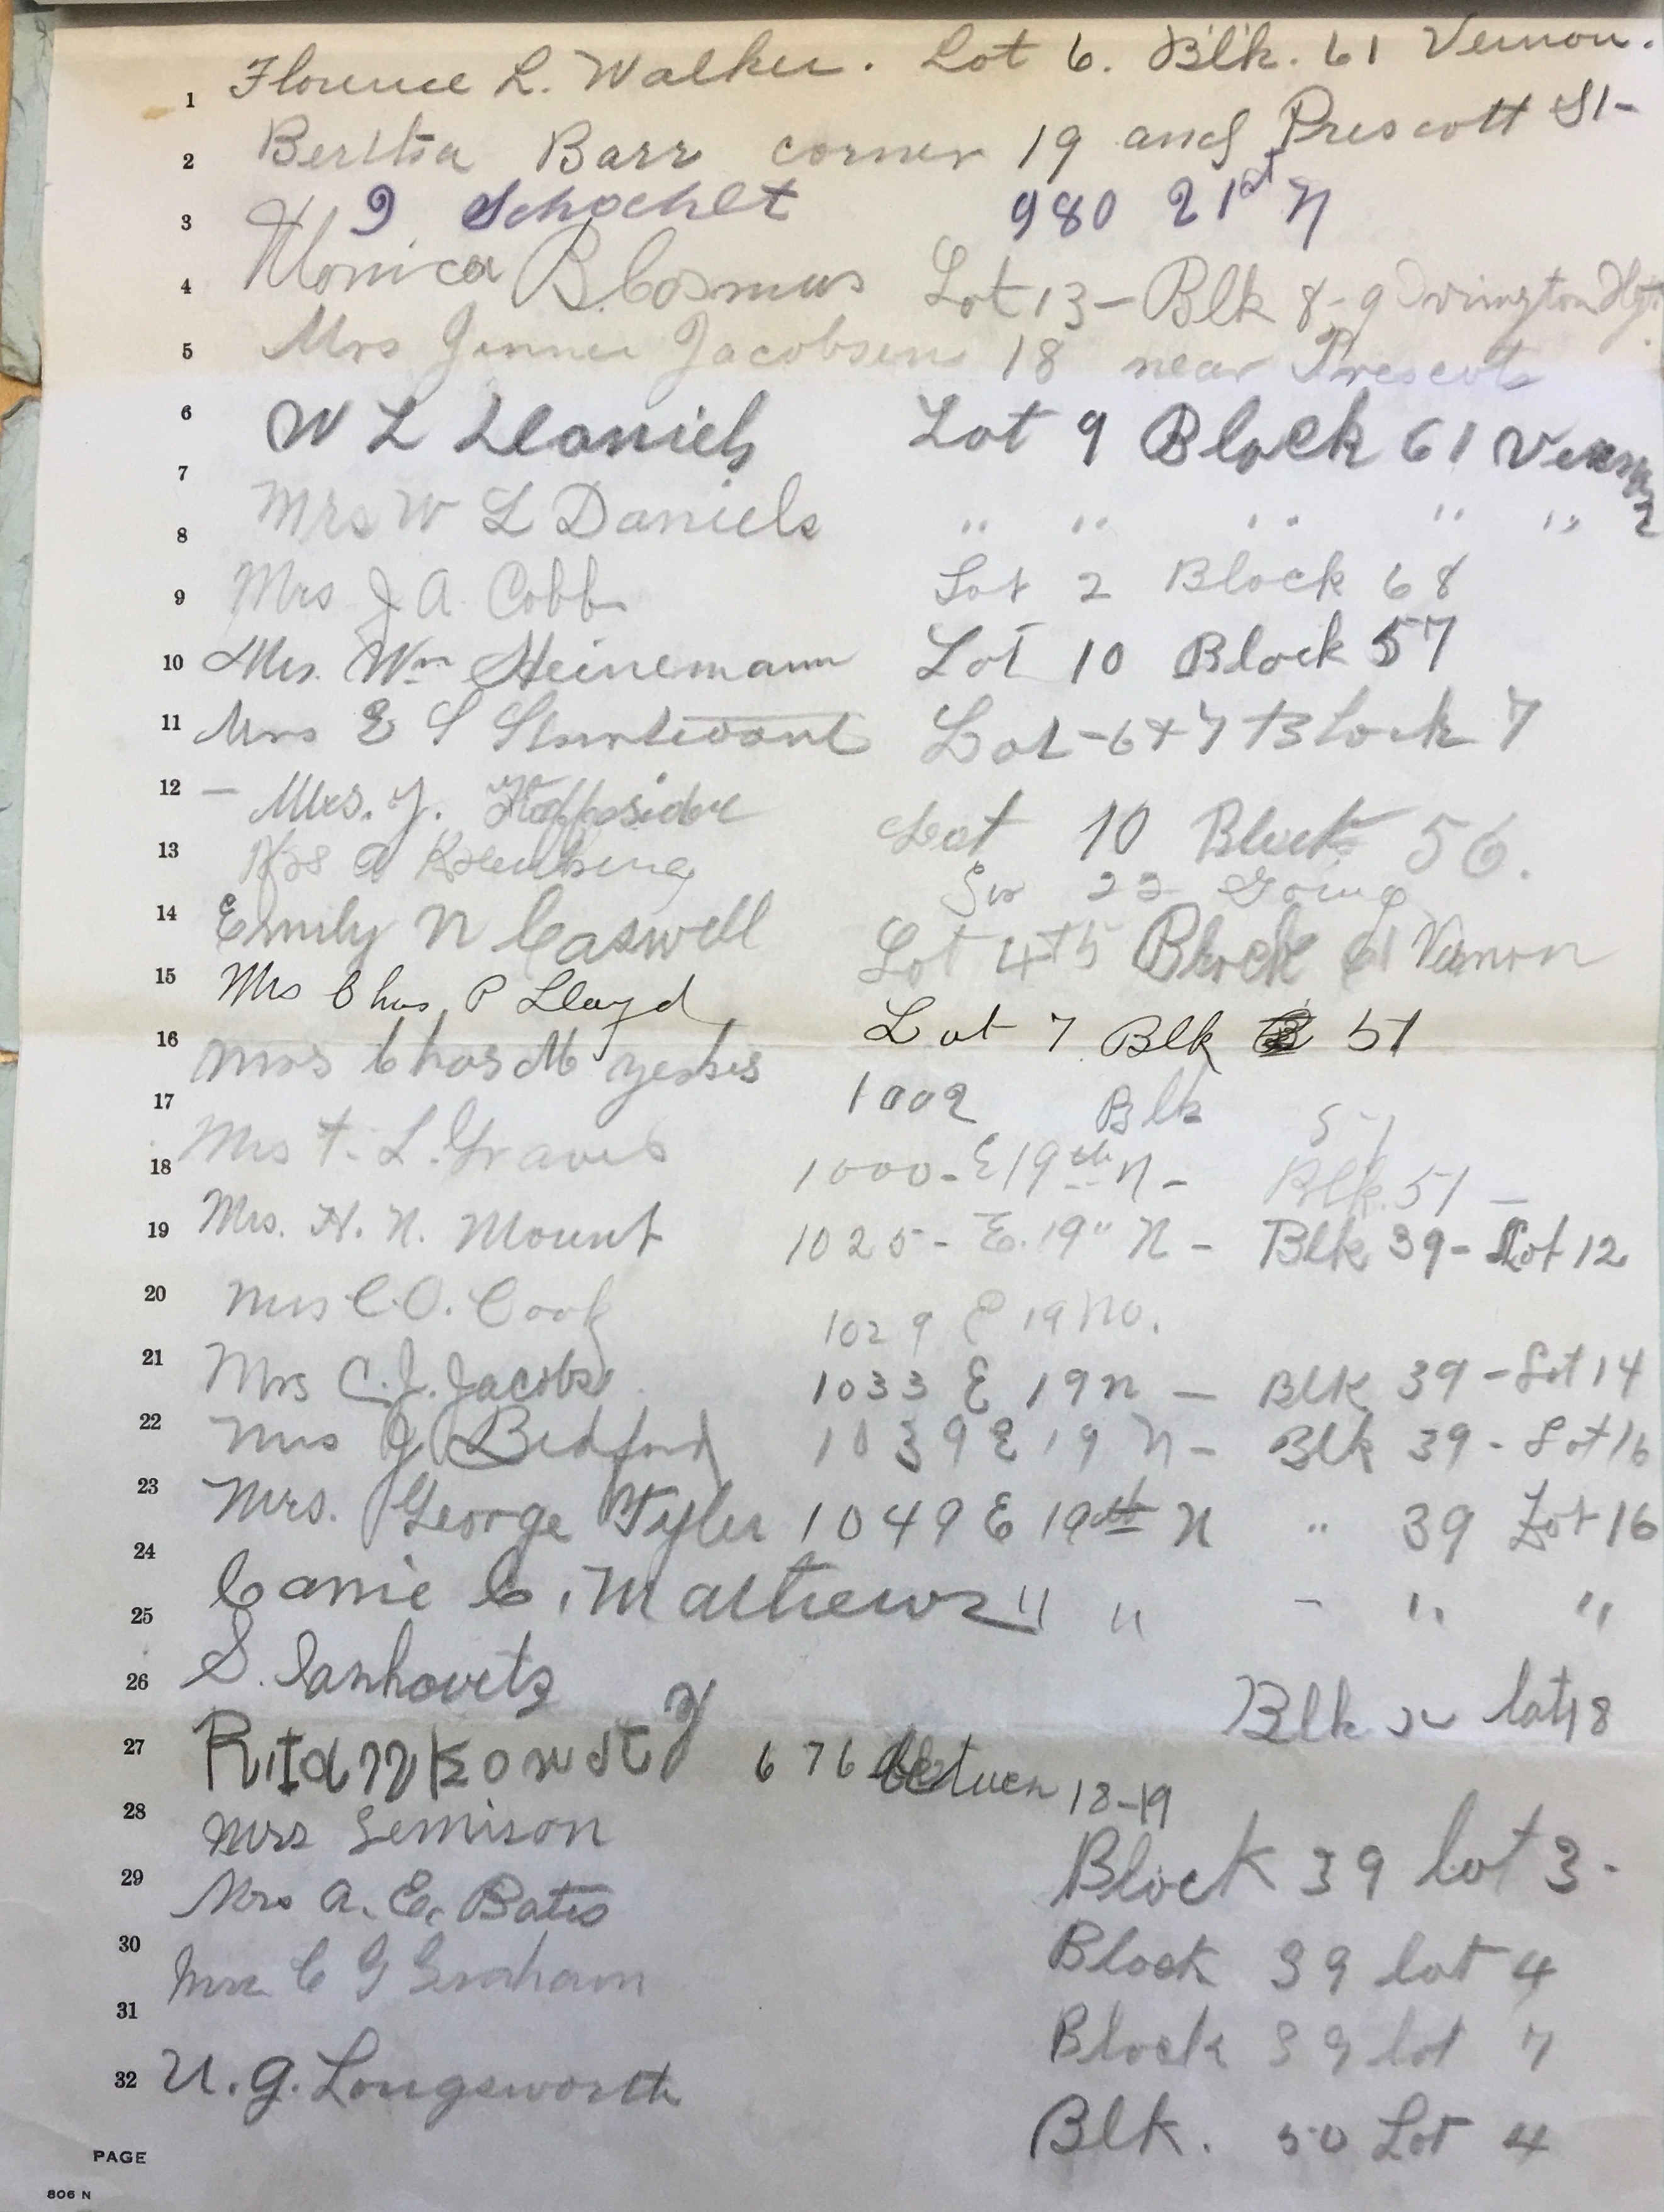 1 Florence L. Walker. Lot 6. Blk. 61 Vernon.
2 Bertha Barr corner 19 and Prescott St-
3 I Schochet 980 21st N
4 Monica B. Cosmus Lot 13 - Blk 8-9 Irvington Hgts
5 Mrs Jennie Jacobsen 18 near Prescott
6 W L Daniels Lot 9 Block 61 Vernon
7
8 Mrs W L Daniels " " " " "
9 Mrs J A. Cobb Lot 2 Block 68
10 Mrs. Wm Heinemann Lot 10 Block 57
11 Mrs E S Sturtevant Lot-6+7 Block 7
12 - Mrs. J. Lot 10 Block 56.
13 Mrs A 22 Going
14 Emily N Caswell Lot 4+5 Block 61 Vernon
15 Mrs Chas. P Lloyd Lot 7 Blk 51
16 Mrs Chas M 1002 Blk 51
17 Mrs F. L. Graves 1000-E 19th N- Blk. 51 -
18
19 Mrs. H. N. Mount 1025- E. 19" N - Blk 39- Lot 12
20 Mrs C. O. Cook 1029 E 19 No.
21 Mrs C. J. Jacobs 1033 E 19 N - Blk 39 - Lot 14
22 Mrs J Bedford 1039 E 19 N - Blk 39 - Lot 16
23 Mrs. George Tyler 1049 E 19th N " 39 Lot 16
24
25 Carrie C. Mathews " " - " "
26 S. Blk lot 18
27 676 between 18-19
28 Mrs Semison Block 39 lot 3-
29 Mrs A. E. Bates Block 39 lot 4
30 Mrs C G Graham Block 39 lot 7
31
32 U. G. Longsworth Blk. 50 Lot 4
PAGE
806 N